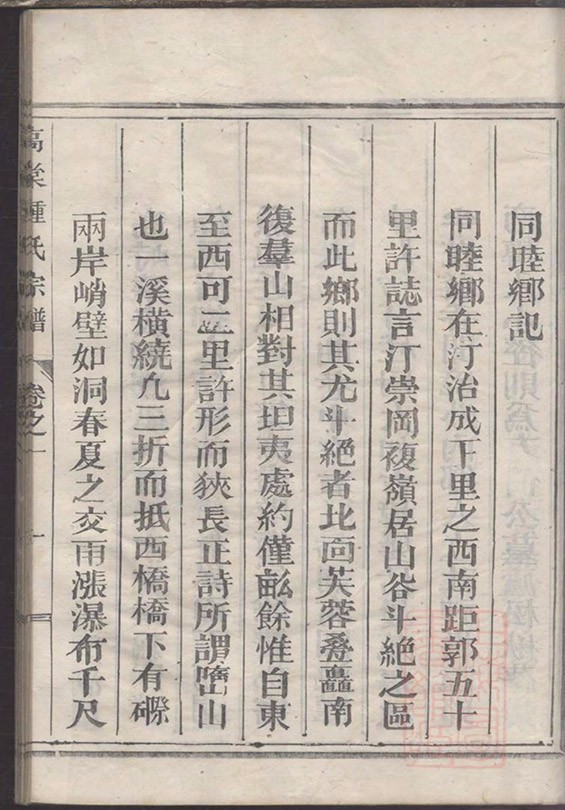 同睦鄉記
同睦鄉在汀治成下里之西南距郭五十
里許誌言汀崇岡複嶺居山谷斗絕之區
而此鄉則其尤斗絕者北面芙蓉叠矗南
復羣山相對其坦夷處約僅畝餘惟自東
至西可二里許形而狹長正詩所謂嶞山
也一溪橫繞九三折而抵西橋橋下有磜
兩岸峭壁如洞春夏之交雨漲瀑布千尺
高棠鍾氏宗譜 卷之一